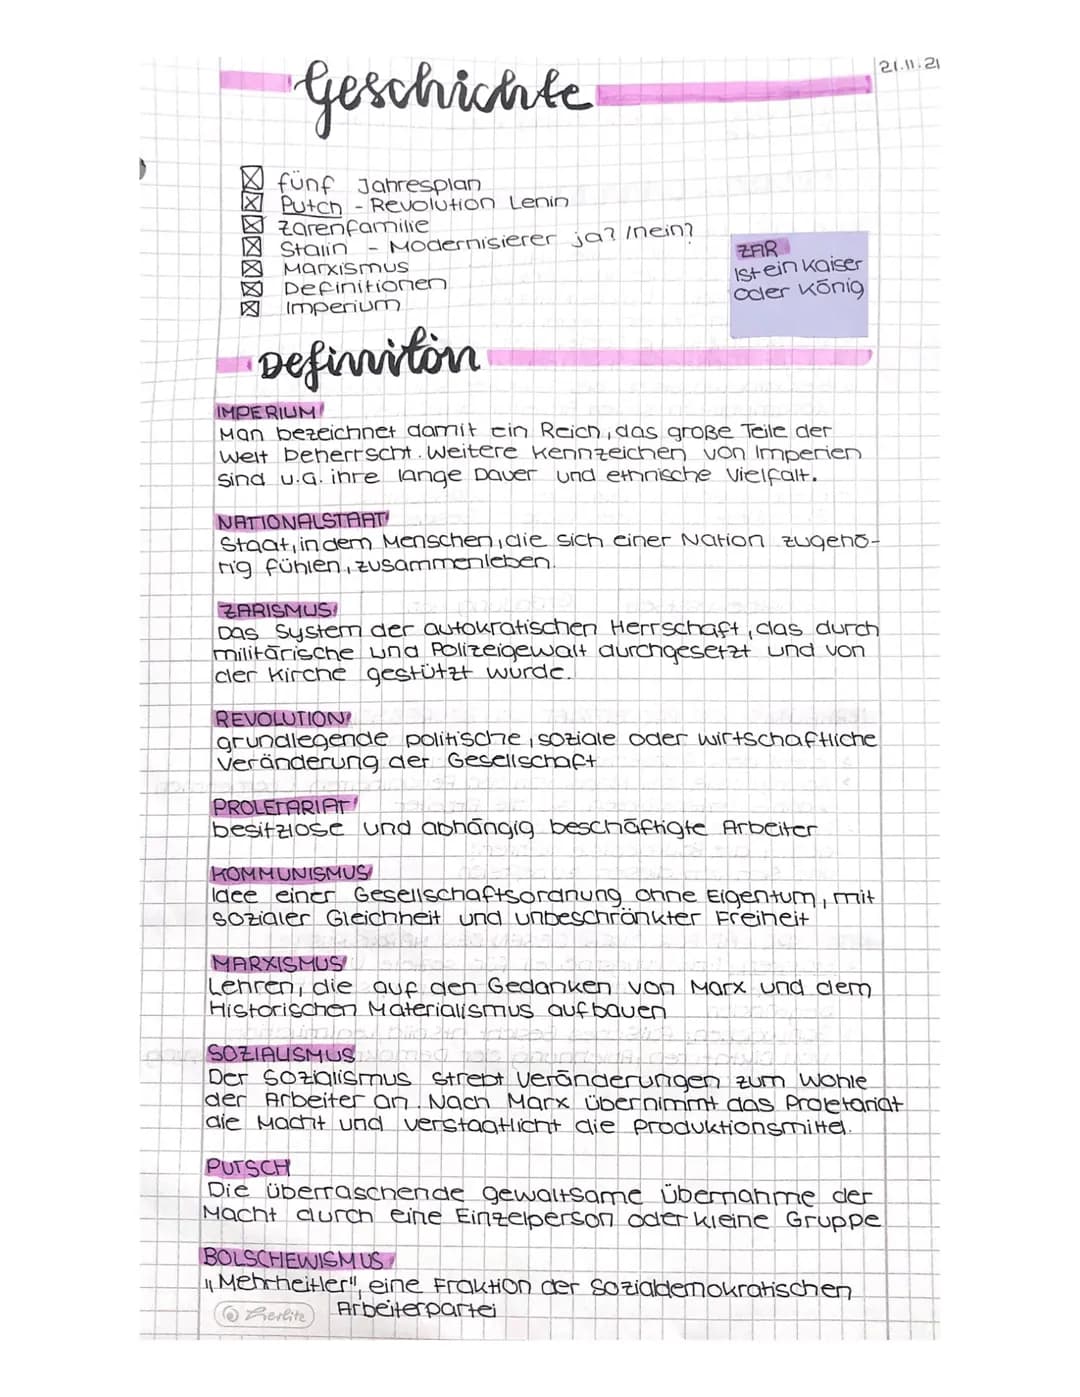 21.11.21
Geschichte
fünf Jahresplan
Putch - Revolution Lenin
Zarenfamilie
Stalin - Modernisierer ja? /nein?
Marxismus
Definitionen
Imperium
ZAR
Ist ein Kaiser
oder König
Definiton
IMPERIUM
Man bezeichnet damit ein Reich, das große Teile der
Welt beherrscht. Weitere Kennzeichen von Imperien
sind u.a. ihre lange Dauer und ethnische Vielfalt.
NATIONALSTAAT
Staat, in dem Menschen, die sich einer Nation zugehö-
rig fühlen, zusammenleben.
ZARISMUS
Das System der autokratischen Herrschaft, das durch
militärische und Polizeigewalt durchgesetzt und von
der Kirche gestützt wurde.
REVOLUTION
grundlegende politische, soziale oder wirtschaftliche
Veränderung der Gesellschaft
PROLETARIAT
besitzlose und abhängig beschäftigte Arbeiter
KOMMUNISMUS
Idee einer Gesellschaftsordnung ohne Eigentum, mit
sozialer Gleichheit und unbeschränkter Freiheit
MARXISMUS
Lehren, die auf den Gedanken von Marx und dem
Historischen Materialismus aufbauen
SOZIALISMUS
Der Sozialismus strebt Veränderungen zum Wohle
der Arbeiter an. Nach Marx übernimmt das Proletariat
die Macht und verstaatlicht die Produktionsmittel.
PUTSCH
Die überraschende gewaltsame Übernahme der
Macht durch eine Einzelperson oder kleine Gruppe
BOLSCHEWISMUS
"Mehrheitler", eine Fraktion der Sozialdemokratischen
Arbeiterpartei
Herlitz